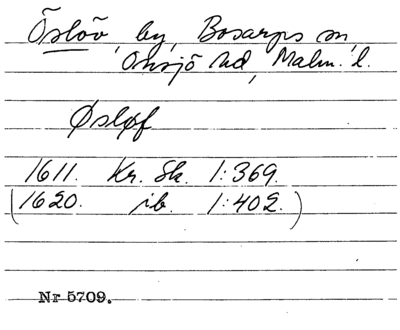 Öslöv, by, Bosarps sn,
Onsjö hd, Malm. l.
Øsløf
1611. Kr. Sk. 1:369.
(1620. ib. 1:402.)
Nr 5709.